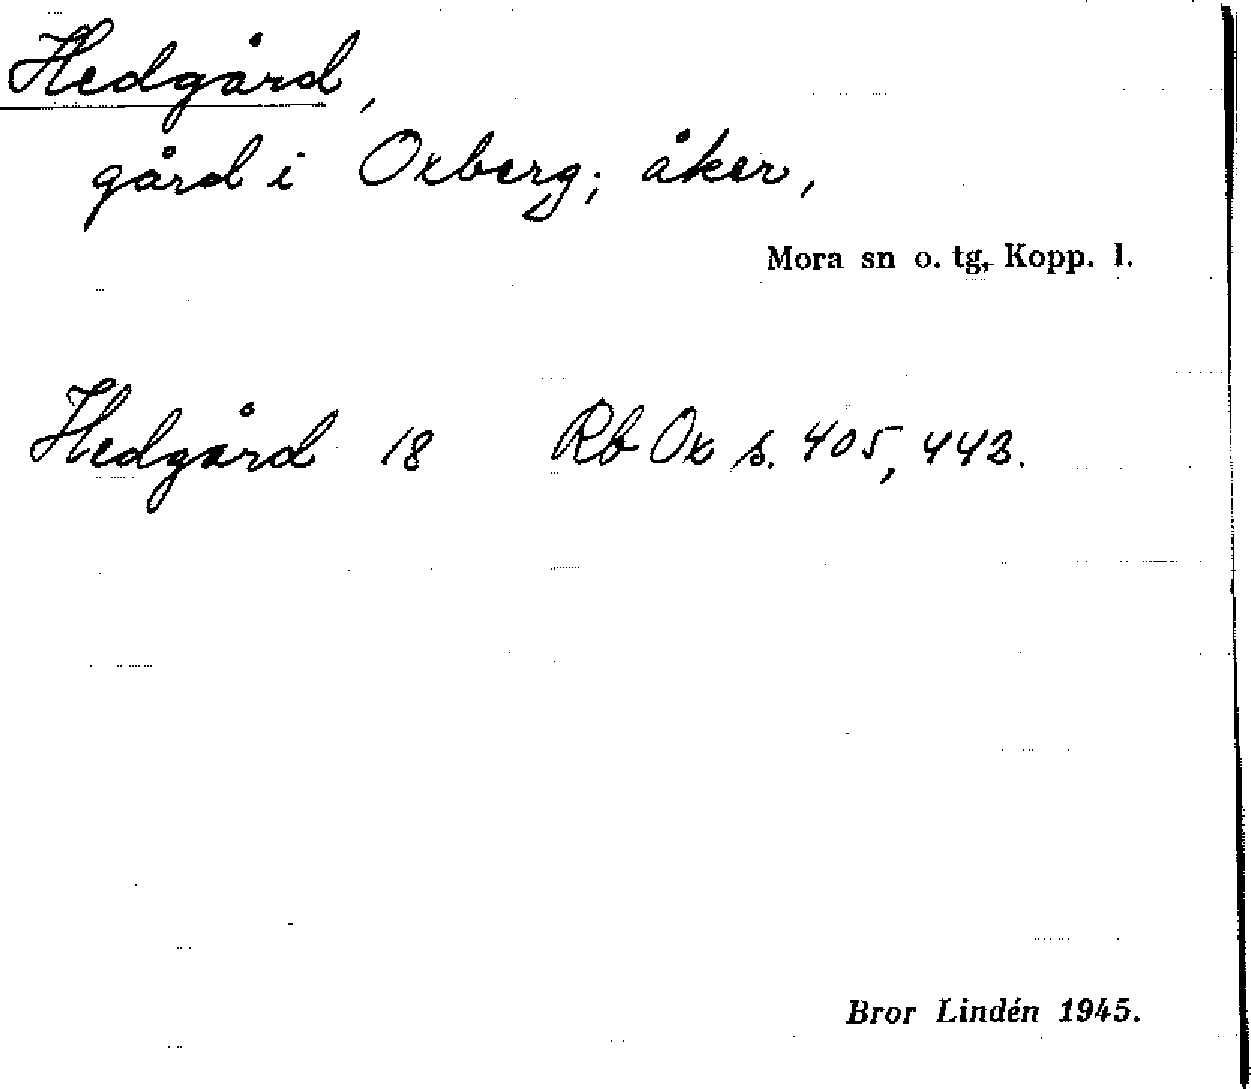 Hedgård,
gård i Oxberg; åker,
Mora sn o. tg, Kopp. l.
Hedgård 18 Rb Ox s. 405, 443.
Bror Lindén 1945.